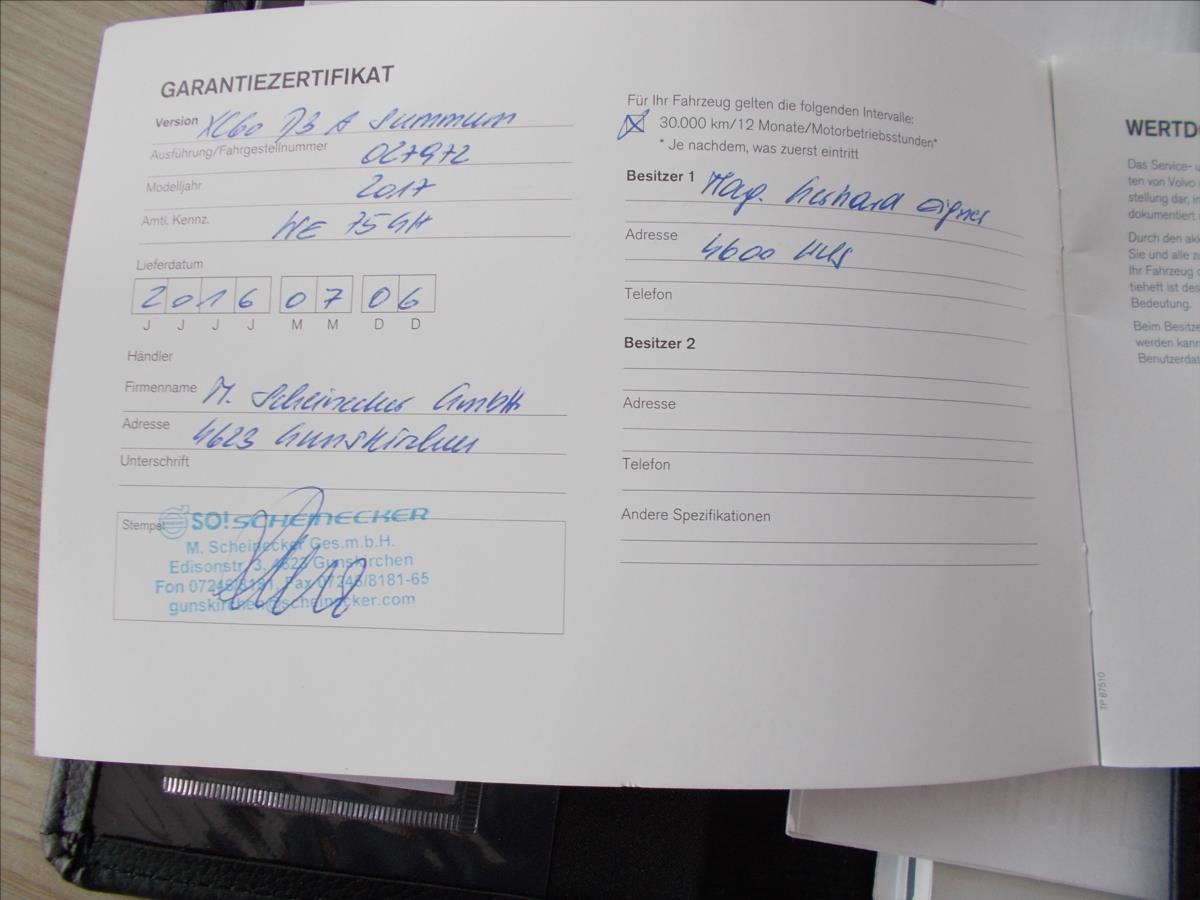 GARANTIEZERTIFIKAT
Version XC60 D3 A Summum
Ausführung/Fahrgestellnummer 027972
Modelljahr 2017
Amtl. Kennz. WE 75GH
Lieferdatum
2016 07 06
J J J J M M D D
Händler
Firmenname M. Scheinecker GmbH
Adresse 4623 Gunskirchen
Unterschrift
Stempel SO! SCHEINECKER
M. Scheinecker Ges.m.b.H.
Edisonstr. 3, 4623 Gunskirchen
Fon 07246/8181, Fax 07246/8181-65
gunskirchen@scheinecker.com
Für Ihr Fahrzeug gelten die folgenden Intervalle:
30.000 km/12 Monate/Motorbetriebsstunden*
* Je nachdem, was zuerst eintritt
Besitzer 1 Mag. Gerhard Aigner
Adresse 4600 Wels
Telefon
Besitzer 2
Adresse
Telefon
Andere Spezifikationen
TP 87510
WERTD
Das Service- u
ten von Volvo
stellung dar, in
dokumentiert
Durch den akk
Sie und alle zu
Ihr Fahrzeug
tieheft ist des
Bedeutung.
Beim Besitze
werden kann
Benutzerdat